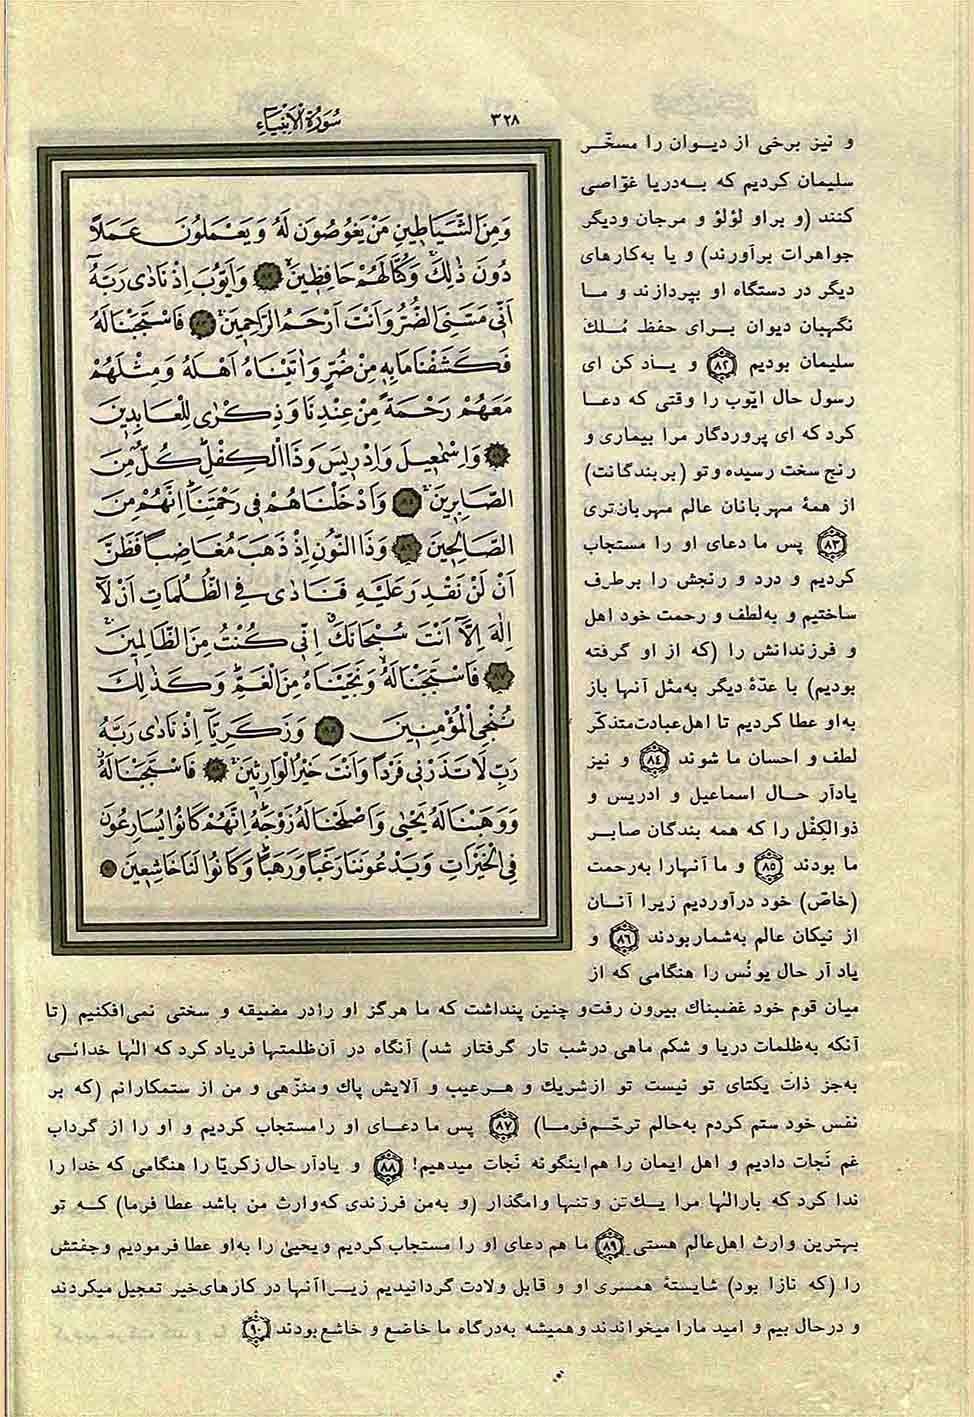 ٣٢٨
سُورَةُ الْاَنْبِيَاءِ
وَمِنَ الشَّيَاطِينِ مَنْ يَغُوصُونَ لَهُ وَيَعْمَلُونَ عَمَلًا
دُونَ ذٰلِكَ وَكُنَّا لَهُمْ حَافِظِينَ ٨٢ وَاَيُّوبَ اِذْ نَادٰى رَبَّهُ
اَنِّي مَسَّنِيَ الضُّرُّ وَاَنْتَ اَرْحَمُ الرَّاحِمِينَ ٨٣ فَاسْتَجَبْنَا لَهُ
فَكَشَفْنَا مَا بِهِ مِنْ ضُرٍّ وَاٰتَيْنَاهُ اَهْلَهُ وَمِثْلَهُمْ
مَعَهُمْ رَحْمَةً مِنْ عِنْدِنَا وَذِكْرٰى لِلْعَابِدِينَ
٨٤ وَاِسْمٰعِيلَ وَاِدْرِيسَ وَذَا الْكِفْلِ كُلٌّ مِنَ
الصَّابِرِينَ ٨٥ وَاَدْخَلْنَاهُمْ فِي رَحْمَتِنَا اِنَّهُمْ مِنَ
الصَّالِحِينَ ٨٦ وَذَا النُّونِ اِذْ ذَهَبَ مُغَاضِبًا فَظَنَّ
اَنْ لَنْ نَقْدِرَ عَلَيْهِ فَنَادٰى فِي الظُّلُمَاتِ اَنْ لَآ
اِلٰهَ اِلَّآ اَنْتَ سُبْحَانَكَ اِنِّي كُنْتُ مِنَ الظَّالِمِينَ
٨٧ فَاسْتَجَبْنَا لَهُ وَنَجَّيْنَاهُ مِنَ الْغَمِّ وَكَذٰلِكَ
نُنْجِي الْمُؤْمِنِينَ ٨٨ وَزَكَرِيَّآ اِذْ نَادٰى رَبَّهُ
رَبِّ لَا تَذَرْنِي فَرْدًا وَاَنْتَ خَيْرُ الْوَارِثِينَ ٨٩ فَاسْتَجَبْنَا لَهُ
وَوَهَبْنَا لَهُ يَحْيٰى وَاَصْلَحْنَا لَهُ زَوْجَهُ اِنَّهُمْ كَانُوا يُسَارِعُونَ
فِي الْخَيْرَاتِ وَيَدْعُونَنَا رَغَبًا وَرَهَبًا وَكَانُوا لَنَا خَاشِعِينَ ٩٠
و نیز برخی از دیـوان را مسخّـر
سلیمان کردیم که بـه‌دریا غوّاصی
کنند (و براو لؤلؤ و مرجان ودیگر
جواهرات برآورند) و یا به‌کارهای
دیگر در دستگاه او بپردازند و مـا
نگهبان دیوان بـرای حفظ مُـلك
سلیمان بودیم ٨٢ و یـاد کن ای
رسول حال ایّوب را وقتی که دعـا
کرد که ای پروردگار مرا بیماری و
رنج سخت رسیده وتو (بربندگانت)
از همهٔ مهربانان عالم مهربان‌تری
٨٣ پس ما دعای او را مستجاب
کردیم و درد و رنجش را برطرف
ساختیم و به‌لطف و رحمت خود اهل
و فرزندانش را (که از او گرفته
بودیم) با عدّهٔ دیگر به‌مثل آنها باز
به‌او عطا کردیم تا اهل‌عبادت‌متذکّر
لطف و احسان ما شوند ٨٤ و نیز
یادآر حـال اسماعیل و ادریس و
ذوالکِفْل را که همه بندگان صابـر
ما بودند ٨٥ و ما آنهارا به‌رحمت
(خاصّ) خود درآوردیم زیرا آنـان
از نیکان عالم به‌شماربودند ٨٦ و
یاد آر حال یونُس را هنگامی که از
میان قوم خود غضبناك بیرون رفت‌و چنین پنداشت که ما هرگز او رادر مضیقه و سختی نمی‌افکنیم (تا
آنکه به‌ظلمات دریا و شکم ماهی درشب تار گرفتار شد) آنگاه در آن‌ظلمتها فریاد کرد که الٰها خدائـی
به‌جز ذات یکتای تو نیست تو ازشریك و هـرعیب و آلایش پاك ومنزّهی و من از ستمکارانم (که بر
نفس خود ستم کردم به‌حالم ترحّـم‌فرمـا) ٨٧ پس ما دعـای او رامستجاب کردیم و او را از گرداب
غم نَجات دادیم و اهل ایمان را هم‌اینگونه نَجات میدهیم! ٨٨ و یادآر حال زکریّا را هنگامی که خدا را
ندا کرد که بارالٰها مرا یـك‌تن وتنها وامگذار (و به‌من فرزندی که‌وارث من باشد عطا فرما) کـه تو
بهترین وارث اهل‌عالم هستی ٨٩ ما هم دعای او را مستجاب کردیم ویحییٰ را به‌او عطا فرمودیم وجفتش
را (که نازا بود) شایستهٔ همسری او و قابل ولادت گردانیدیم زیـراآنها در کارهای‌خیر تعجیل میکردند
و درحال بیم و امید مارا میخواندند وهمیشه به‌درگاه ما خاضع و خاشع‌بودند ٩٠